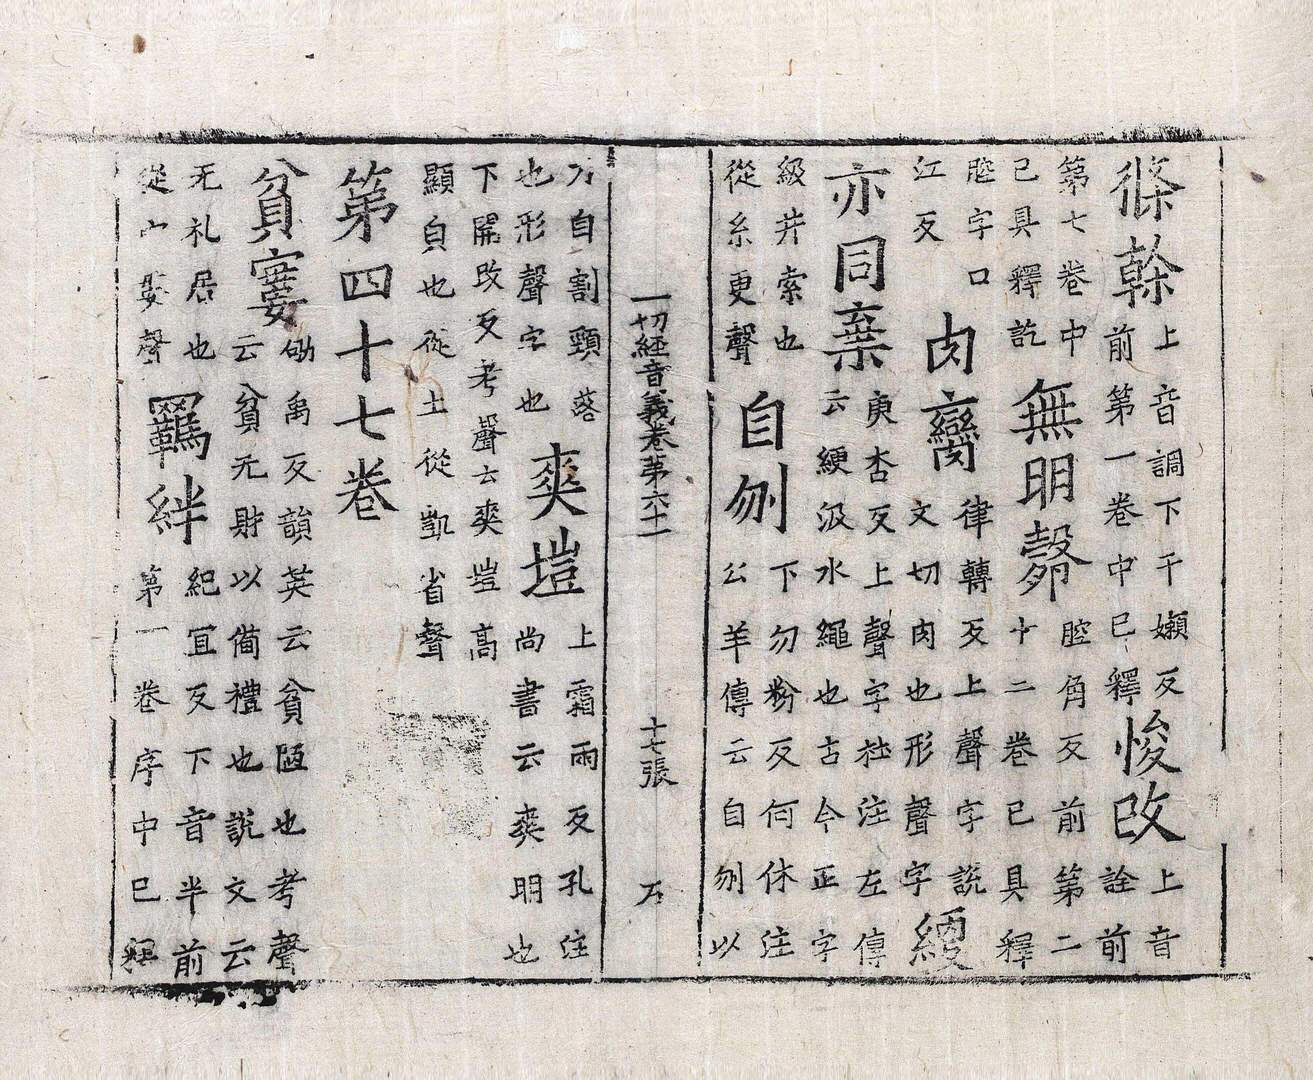 條幹
上音調下干嬾反
前第一卷中已釋
悛改
上音
詮前
第七卷中
已具釋訖
無明㲉
腔角反前第二
十二卷已具釋
腔字口
江反
肉臠
律轉反上聲字說
文切肉也形聲字
綆
亦同棄
庚杏反上聲字杜注左傳
云綆汲水繩也古今正字
級井索也
從糸更聲
自刎
下勿粉反何休注
公羊傳云自刎以
一切経音義卷第六十一
十七張
刀自割頸落
也形聲字也
爽塏
上霜雨反孔注
尚書云爽明也
下開改反考聲云爽塏高
顯自也從土從凱省聲
第四十七卷
貧窶
劬禹反韻英云貧陋也考聲
云貧无財以備禮也說文云
无礼居也
從宀婁聲
羈絆
紀冝反下音半前
第一卷序中已釋